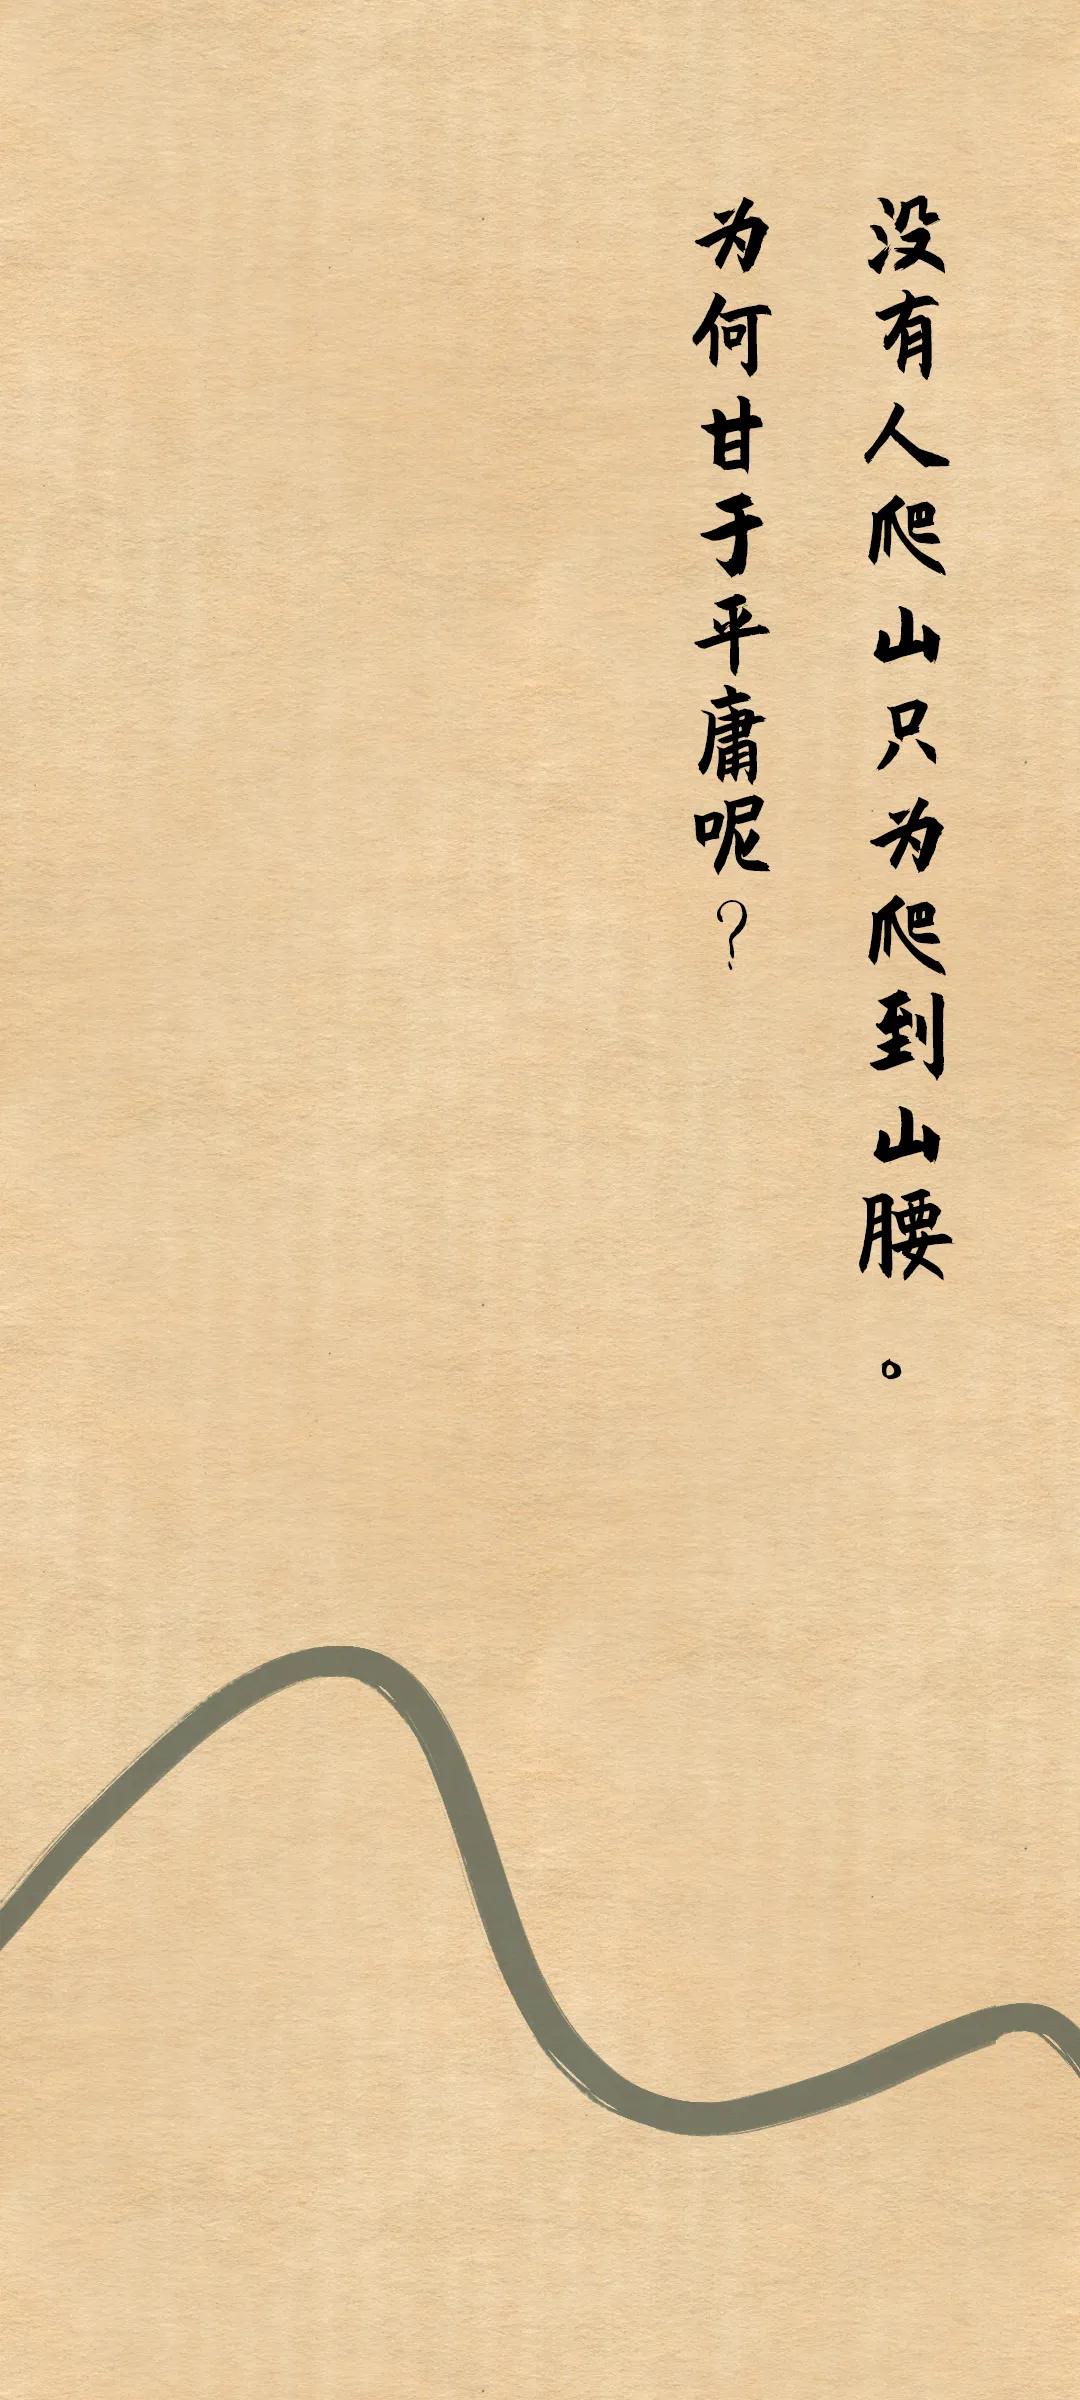 没有人爬山只为爬到山腰。
为何甘于平庸呢?